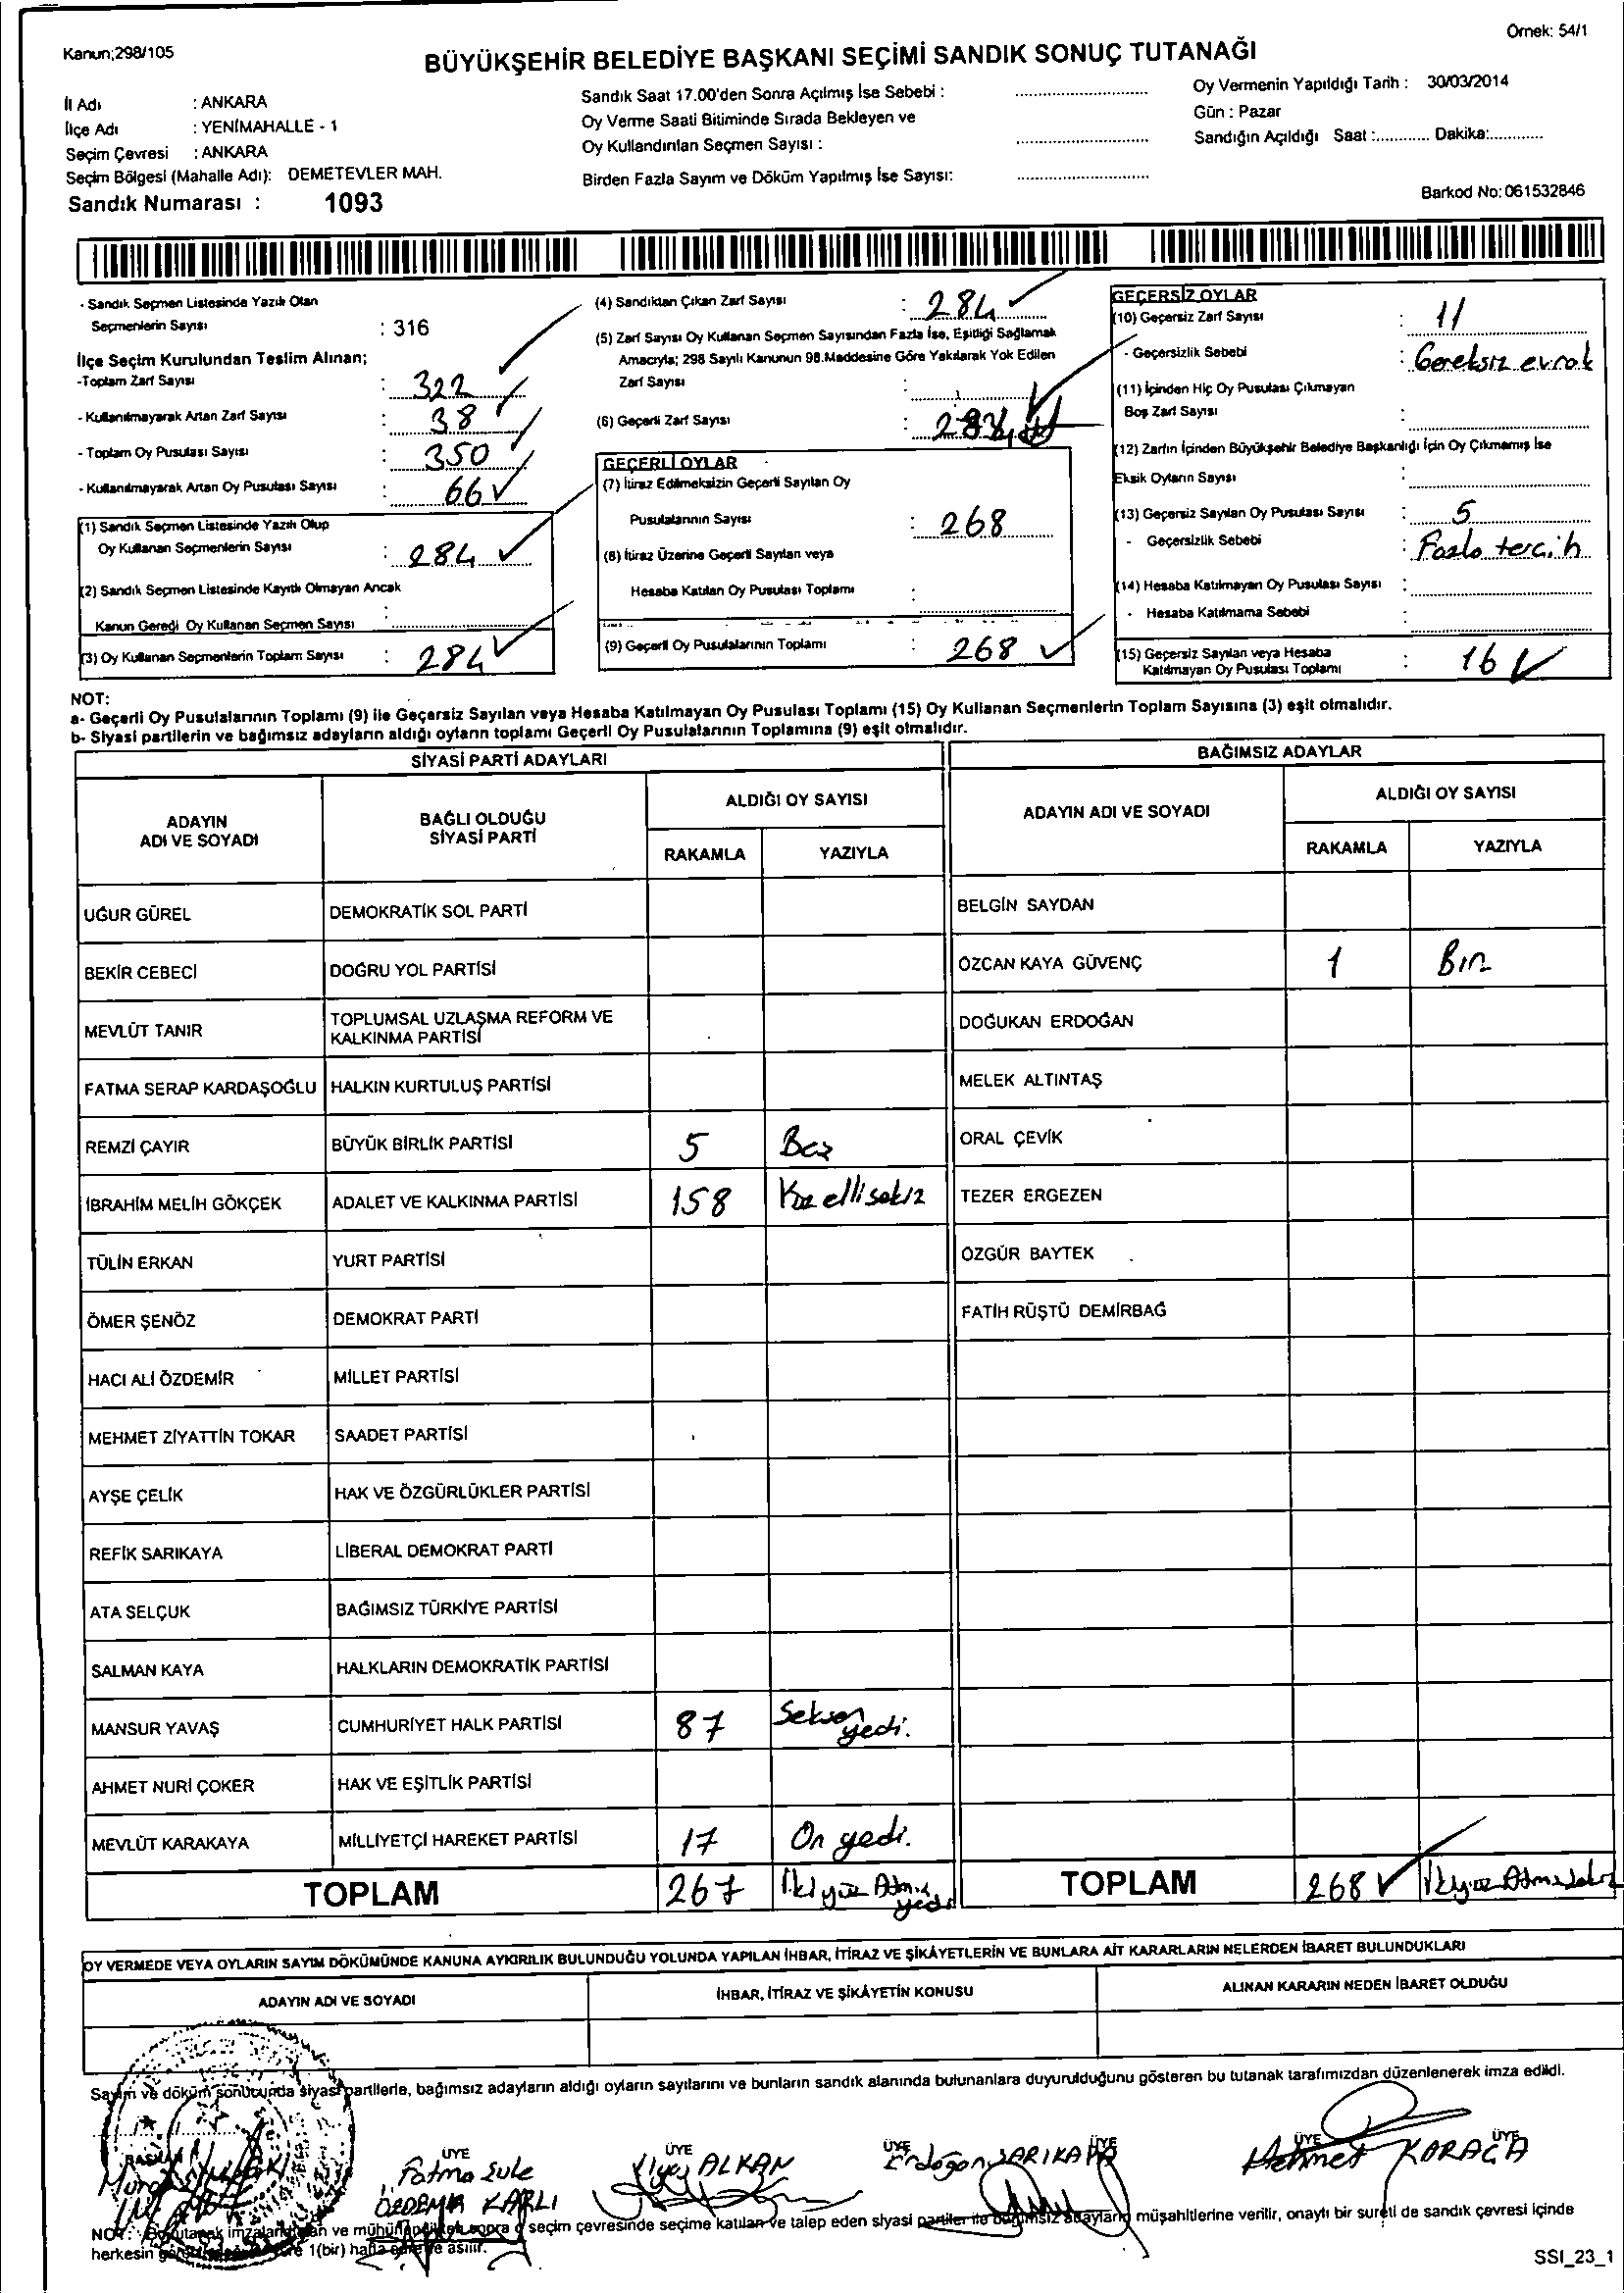 Kanun;298/105
Örnek: 54/1
BÜYÜKŞEHİR BELEDİYE BAŞKANI SEÇİMİ SANDIK SONUÇ TUTANAĞI
İl Adı : ANKARA
İlçe Adı : YENİMAHALLE - 1
Seçim Çevresi : ANKARA
Seçim Bölgesi (Mahalle Adı): DEMETEVLER MAH.
Sandık Numarası : 1093
Sandık Saat 17.00'den Sonra Açılmış İse Sebebi :
Oy Verme Saati Bitiminde Sırada Bekleyen ve
Oy Kullandırılan Seçmen Sayısı :
Birden Fazla Sayım ve Döküm Yapılmış İse Sayısı:
Oy Vermenin Yapıldığı Tarih : 30/03/2014
Gün : Pazar
Sandığın Açıldığı Saat :............ Dakika:............
Barkod No: 061532846
- Sandık Seçmen Listesinde Yazılı Olan
Seçmenlerin Sayısı : 316
İlçe Seçim Kurulundan Teslim Alınan;
-Toplam Zarf Sayısı : 322
- Kullanılmayarak Artan Zarf Sayısı : 38
- Toplam Oy Pusulası Sayısı : 350
- Kullanılmayarak Artan Oy Pusulası Sayısı : 66
(1) Sandık Seçmen Listesinde Yazılı Olup
Oy Kullanan Seçmenlerin Sayısı : 284
(2) Sandık Seçmen Listesinde Kayıtlı Olmayan Ancak
Kanun Gereği Oy Kullanan Seçmen Sayısı :
(3) Oy Kullanan Seçmenlerin Toplam Sayısı : 284
(4) Sandıktan Çıkan Zarf Sayısı : 284
(5) Zarf Sayısı Oy Kullanan Seçmen Sayısından Fazla İse, Eşitliği Sağlamak
Amacıyla; 298 Sayılı Kanunun 98.Maddesine Göre Yakılarak Yok Edilen
Zarf Sayısı :
(6) Geçerli Zarf Sayısı :
GEÇERLİ OYLAR
(7) İtiraz Edilmeksizin Geçerli Sayılan Oy
Pusulalarının Sayısı : 268
(8) İtiraz Üzerine Geçerli Sayılan veya
Hesaba Katılan Oy Pusulası Toplamı :
(9) Geçerli Oy Pusulalarının Toplamı : 268
GEÇERSİZ OYLAR
(10) Geçersiz Zarf Sayısı : 11
- Geçersizlik Sebebi : Gereksiz evrak
(11) İçinden Hiç Oy Pusulası Çıkmayan
Boş Zarf Sayısı :
(12) Zarfın İçinden Büyükşehir Belediye Başkanlığı İçin Oy Çıkmamış İse
Eksik Oyların Sayısı :
(13) Geçersiz Sayılan Oy Pusulası Sayısı : 5
- Geçersizlik Sebebi : Fazla tercih
(14) Hesaba Katılmayan Oy Pusulası Sayısı :
- Hesaba Katılmama Sebebi :
(15) Geçersiz Sayılan veya Hesaba
Katılmayan Oy Pusulası Toplamı : 16
NOT:
a- Geçerli Oy Pusulalarının Toplamı (9) ile Geçersiz Sayılan veya Hesaba Katılmayan Oy Pusulası Toplamı (15) Oy Kullanan Seçmenlerin Toplam Sayısına (3) eşit olmalıdır.
b- Siyasi partilerin ve bağımsız adayların aldığı oyların toplamı Geçerli Oy Pusulalarının Toplamına (9) eşit olmalıdır.
SİYASİ PARTİ ADAYLARI
ADAYIN
ADI VE SOYADI
BAĞLI OLDUĞU
SİYASİ PARTİ
ALDIĞI OY SAYISI
RAKAMLA YAZIYLA
UĞUR GÜREL DEMOKRATİK SOL PARTİ
BEKİR CEBECİ DOĞRU YOL PARTİSİ
MEVLÜT TANIR TOPLUMSAL UZLAŞMA REFORM VE
KALKINMA PARTİSİ
FATMA SERAP KARDAŞOĞLU HALKIN KURTULUŞ PARTİSİ
REMZİ ÇAYIR BÜYÜK BİRLİK PARTİSİ 5 Beş
İBRAHİM MELİH GÖKÇEK ADALET VE KALKINMA PARTİSİ 158 Yüz ellisekiz
TÜLİN ERKAN YURT PARTİSİ
ÖMER ŞENÖZ DEMOKRAT PARTİ
HACI ALİ ÖZDEMİR MİLLET PARTİSİ
MEHMET ZİYATTİN TOKAR SAADET PARTİSİ
AYŞE ÇELİK HAK VE ÖZGÜRLÜKLER PARTİSİ
REFİK SARIKAYA LİBERAL DEMOKRAT PARTİ
ATA SELÇUK BAĞIMSIZ TÜRKİYE PARTİSİ
SALMAN KAYA HALKLARIN DEMOKRATİK PARTİSİ
MANSUR YAVAŞ CUMHURİYET HALK PARTİSİ 87 Seksen yedi.
AHMET NURİ ÇOKER HAK VE EŞİTLİK PARTİSİ
MEVLÜT KARAKAYA MİLLİYETÇİ HAREKET PARTİSİ 17 On yedi.
TOPLAM 267 İki yüz Atmış yedi
BAĞIMSIZ ADAYLAR
ADAYIN ADI VE SOYADI
ALDIĞI OY SAYISI
RAKAMLA YAZIYLA
BELGİN SAYDAN
ÖZCAN KAYA GÜVENÇ 1 Bir
DOĞUKAN ERDOĞAN
MELEK ALTINTAŞ
ORAL ÇEVİK
TEZER ERGEZEN
ÖZGÜR BAYTEK
FATİH RÜŞTÜ DEMİRBAĞ
TOPLAM 268 İkiyüz Atmışsekiz
OY VERMEDE VEYA OYLARIN SAYIM DÖKÜMÜNDE KANUNA AYKIRILIK BULUNDUĞU YOLUNDA YAPILAN İHBAR, İTİRAZ VE ŞİKÂYETLERİN VE BUNLARA AİT KARARLARIN NELERDEN İBARET BULUNDUKLARI
ADAYIN ADI VE SOYADI
İHBAR, İTİRAZ VE ŞİKÂYETİN KONUSU
ALINAN KARARIN NEDEN İBARET OLDUĞU
Sayım ve döküm sonucunda siyasi partilerle, bağımsız adayların aldığı oyların sayılarını ve bunların sandık alanında bulunanlara duyurulduğunu gösteren bu tutanak tarafımızdan düzenlenerek imza edildi.
BAŞKAN ÜYE ÜYE ÜYE ÜYE ÜYE ÜYE
Fatma Şule
ÖZDEMİR KARLI
İlyas ALKAN
Erdoğan SARIKAYA
Mehmet KARACA
NOT: Bu tutanak imzalandıktan ve mühürlendikten sonra o seçim çevresinde seçime katılan ve talep eden siyasi partiler ile bağımsız adayların müşahitlerine verilir, onaylı bir sureti de sandık çevresi içinde
herkesin 1(bir) hafta süre ile asılır.
SSI_23_1